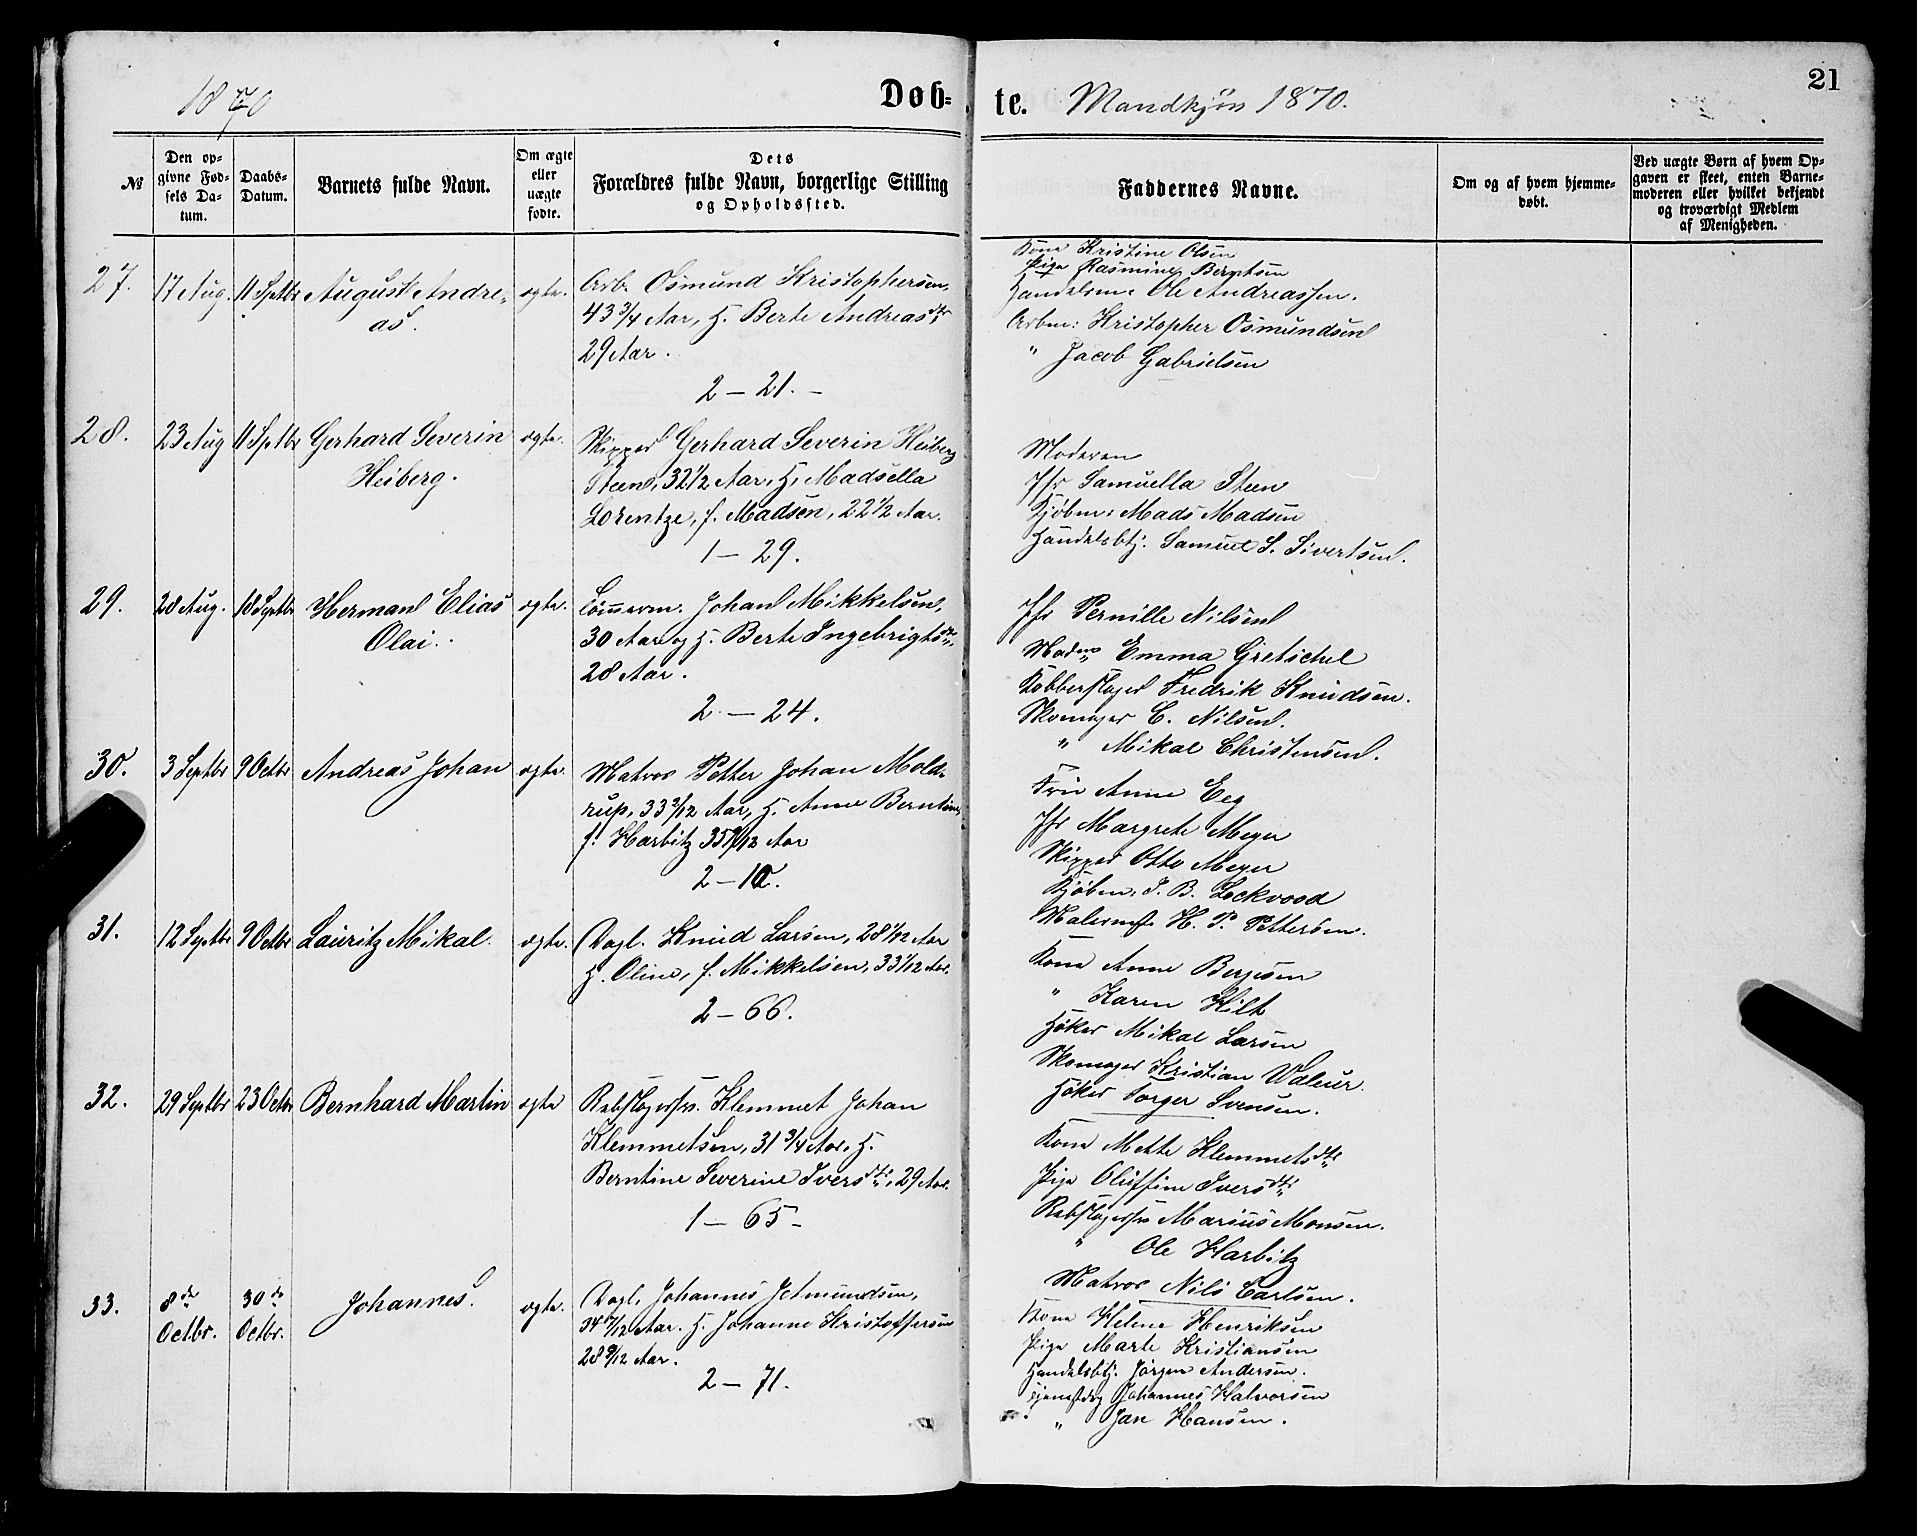 1870
Døb-
te.
Mandkjøn 1870.
21
№
Den op-
givne Fød-
sels Da-
tum.
Daabs-
Datum.
Barnets fulde Navn.
Om ægte
eller
uægte
fødte.
Dets
Forældres fulde Navn, borgerlige Stilling
og Opholdssted.
Faddernes Navne.
Om og af hvem hjemme-
døbt.
Ved uægte Børn af hvem Op-
gaven er skeet, enten Barne-
moderen eller hvilket bekjendt
og troværdigt Medlem
af Menigheden.
27.
17 Aug.
11 Septbr
August Andre-
as.
ægte.
Arb. Osmund Kristophersen,
43 3/4 Aar, H. Berte Andreasdtr
29 Aar.
2 – 21. –
Kone Kristine Olsen
Pige Rasmine Berntsen
Handelsm: Ole Andreassen.
Arbm: Kristopher Osmundsen
" Jacob Gabrielsen
28.
23 Aug
11 Septbr
Gerhard Severin
Heiberg.
ægte.
Skipper Gerhard Severin Heiberg
Steen, 32 1/2 Aar, H. Madsella
Lorentze, f. Madsen, 22 1/2 Aar.
1 – 29.
Moderen
Jfr Samuella Steen
Kjøbm: Mads Madsen
Handelsbtj. Samuel S. Sivertsen.
29.
28 Aug.
18 Septbr
Herman Elias
Olai.
ægte.
Tømmerm. Johan Mikkelsen,
30 Aar og H. Berte Ingebrigtsdtr.
28 Aar.
2 – 24.
Jfr Pernille Nilsen
Mad. Emma Gretschel
Kobberslager Fredrik Knudsen.
Skomager C. Nilsen.
" Mikal Christensen.
30.
3 Septbr
9 Octbr
Andreas Johan
ægte.
Matros Petter Johan Mold-
rup, 33 2/12 Aar, H. Anne Berntine,
f. Harbitz 35 9/12 Aar
2 – 10.
Fru Anne Eeg
Jfr Margrete Meyer
Skipper Otto Meyer
Kjøbm. J. B. Lockvood
Malermst. H. P. Pettersen.
31.
12 Septbr
9 Octbr
Lauritz Mikal.
ægte.
Dagl. Knud Larsen, 28 1/12 Aar
H. Oline, f. Mikkelsen, 33 1/12 Aar.
2 – 66.
Kone Anne Bergesen
" Karen Hilt
Høker Mikal Larsen
Skomager Kristian Valeur.
Høker Torger Svensen.
32.
29 Septbr
23 Octbr
Bernhard Martin
ægte
Rebslagersv. Klemmet Johan
Klemmetsen, 31 3/4 Aar, H.
Berntine Severine Iversdtr., 29 Aar.
1 – 65 –
Kone Mette Klemmetsdtr
Pige Oluffine Iversdtr
Rebslagersv Marius Monsen.
" Ole Harbitz
Matros Nils Carlsen.
33.
8de
Octbr.
30te
Octbr.
Johannes.
ægte.
Dagl. Johannes Jetmundsen,
34 Aar. H. Johanne Kristoffersen
28 9/12 Aar.
2 – 71.
Kone Helene Henriksen
Pige Marte Kristiansen
Handelsbtj. Jørgen Andersen.
Tjenestdrg Johannes Halvorsen
" Jan Hansen.